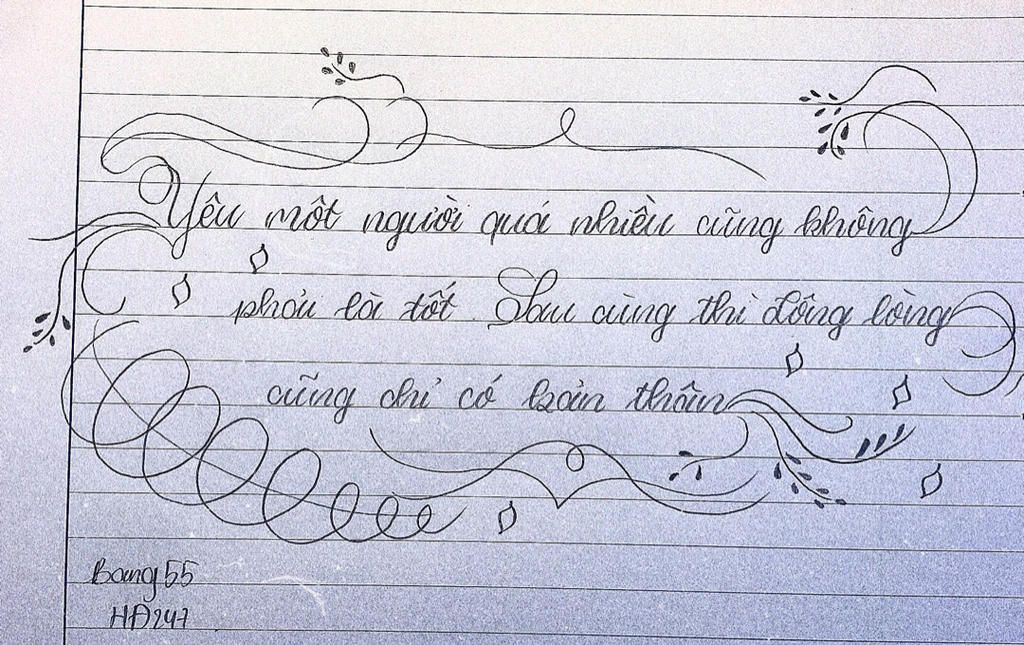 Yêu một người quá nhiều cũng không
phải là tốt. Sau cùng thì đồng lòng
cũng chỉ có bản thân
Bang 55
HĐ247